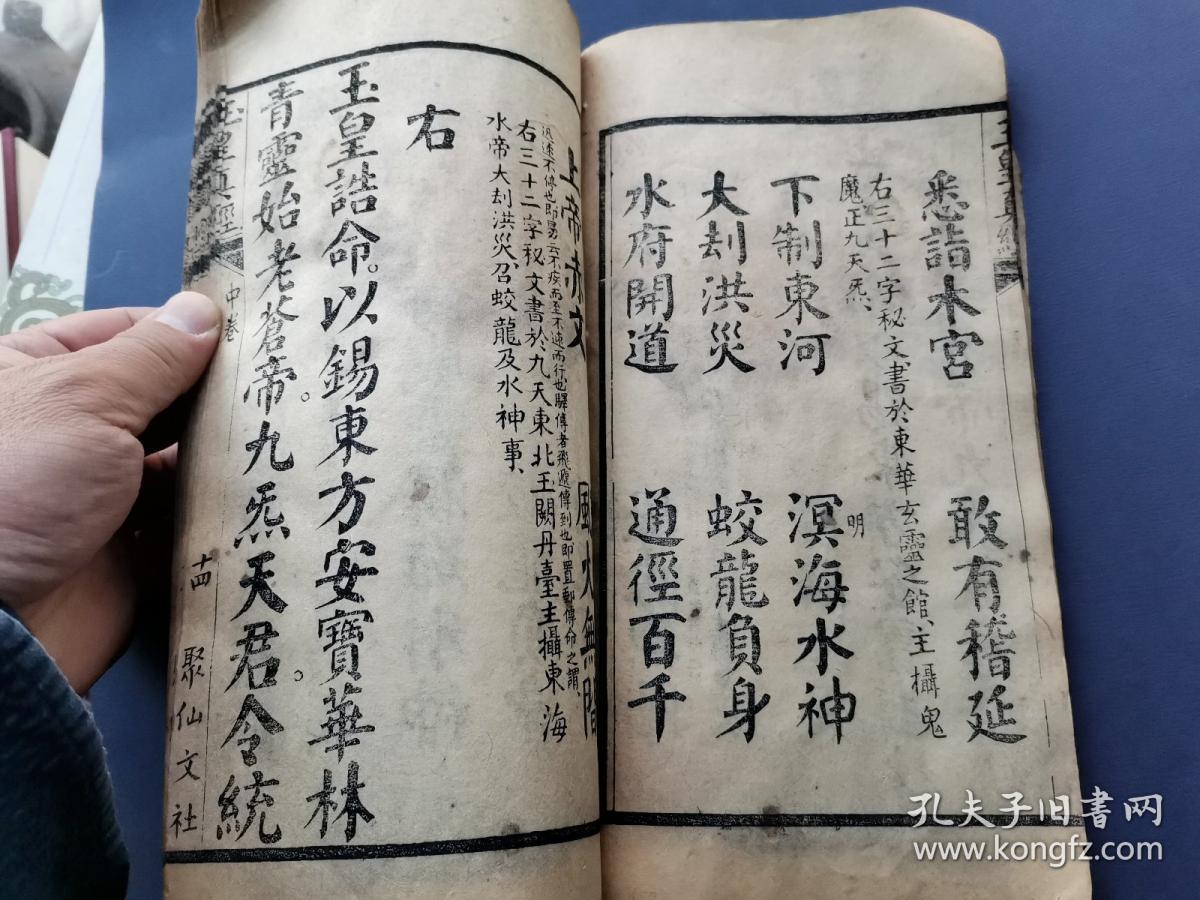 悉詣木宮 敢有稽延
右三十二字秘文書於東華玄靈之館、主攝鬼
魔正九天炁、
下制東河 溟海水神
明
大刦洪災 蛟龍負身
水府開道 通徑百千
上帝赤文 風火無間
迅速不停也即易云不疾而至不速而行也驛傳者飛遞傳到也即置郵傳命之謂
右三十二字秘文書於九天東北玉闕丹臺主攝東海
水帝大刦洪災召蛟龍及水神事、
右
玉皇誥命。以錫東方安寶華林
青靈始老蒼帝。九炁天君。令統
玉皇真經
中卷
十四
聚仙文社
孔夫子旧书网
www.kongfz.com